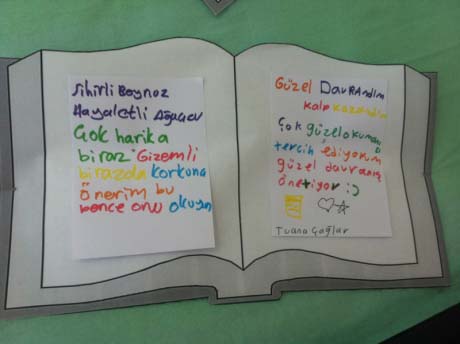 Sihirli Boynoz
Hayaletli Ağacev
Çok harika
biraz Gizemli
birazda korkunç
önerim bu
bence onu okuyun
Güzel DavRAndım
kalp kazandım
Çok güzel okumanı
tercih ediyorum
güzel davranış
öneriyor :)
Tuana Çağlar